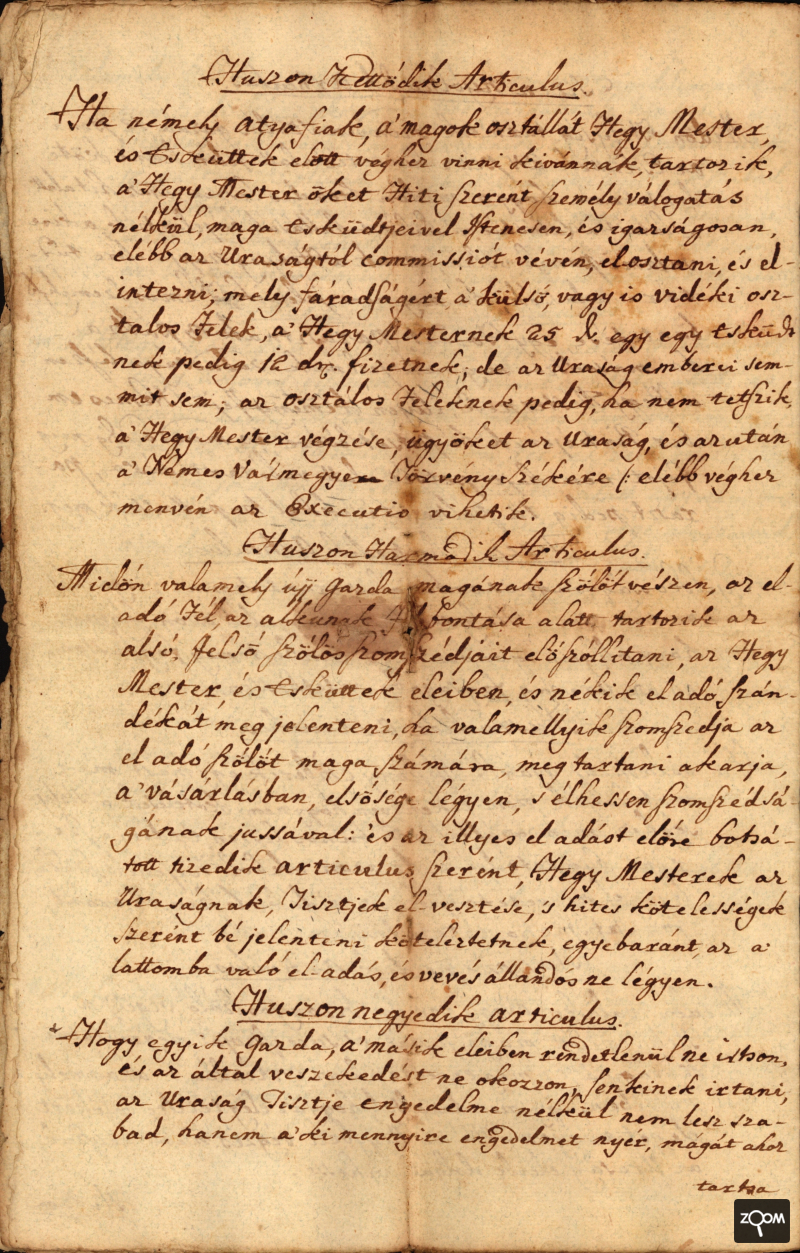 Huszon Kettödik Articulus.
Ha némely atyafiak, a' magok osztállát Hegy Mester,
és Esküttek elött végher vinni kivánnák, tartozik,
a' Hegy Mester öket Hiti szerént személy válogatás
nélkül, maga Esküdtjeivel Istenesen, és igazságosan,
elébb az Uraságtól commissiót vévén, el osztani, és el-
intezni; mely fáradságért a' külsö, vagy is vidéki osz-
talos Felek, a' Hegy Mesternek 25 d. egy egy Esküdt
nek pedig 12 dr. fizetnek; de az Uraság emberei sem-
mit sem; az osztálos Feleknek pedig, ha nem tetszik,
a' Hegy Mester végzése, ügyöket az Uraság, és azután
a' Nemes Vármegye Törvény székére /: elébb végher
menvén az Executio vihetik.
Huszon Harmadik Articulus.
Midön valamely új Gazda magának szölöt vészen, az el-
adó Fél, az alkunak bontása alatt tartozik az
alsó, felsö szölös szomszédjait elöszóllitani, az Hegy
Mester, és Esküttek eleiben, és nékik el adó szán-
dékát meg jelenteni, ha valamellyik szomszedja az
el adó szölöt maga számára, meg tartani akarja,
a' vásárlásban, elsösége légyen, 's élhessen szomszédsá-
gának jussával: és az illyes el adást elöre botsá-
tott tizedik articulus szerént, Hegy Mesterek az
Uraságnak, Tisztjek el-vesztése, 's hites kötelességek
szerént bé jelenteni köteleztetnek, egyebaránt, az a'
lattomba való el-adás, és vevés állandós ne légyen.
Huszon negyedik articulus.
Hogy egyik Gazda, a' másik eleiben rendetlenül ne irtson,
és az által veszekedést ne okozzon, senkinek irtani,
az Uraság Tisztje engedelme nélkül nem lesz sza-
bad, hanem a' ki mennyire engedelmet nyér, magát ahoz
tartsa
ZOOM